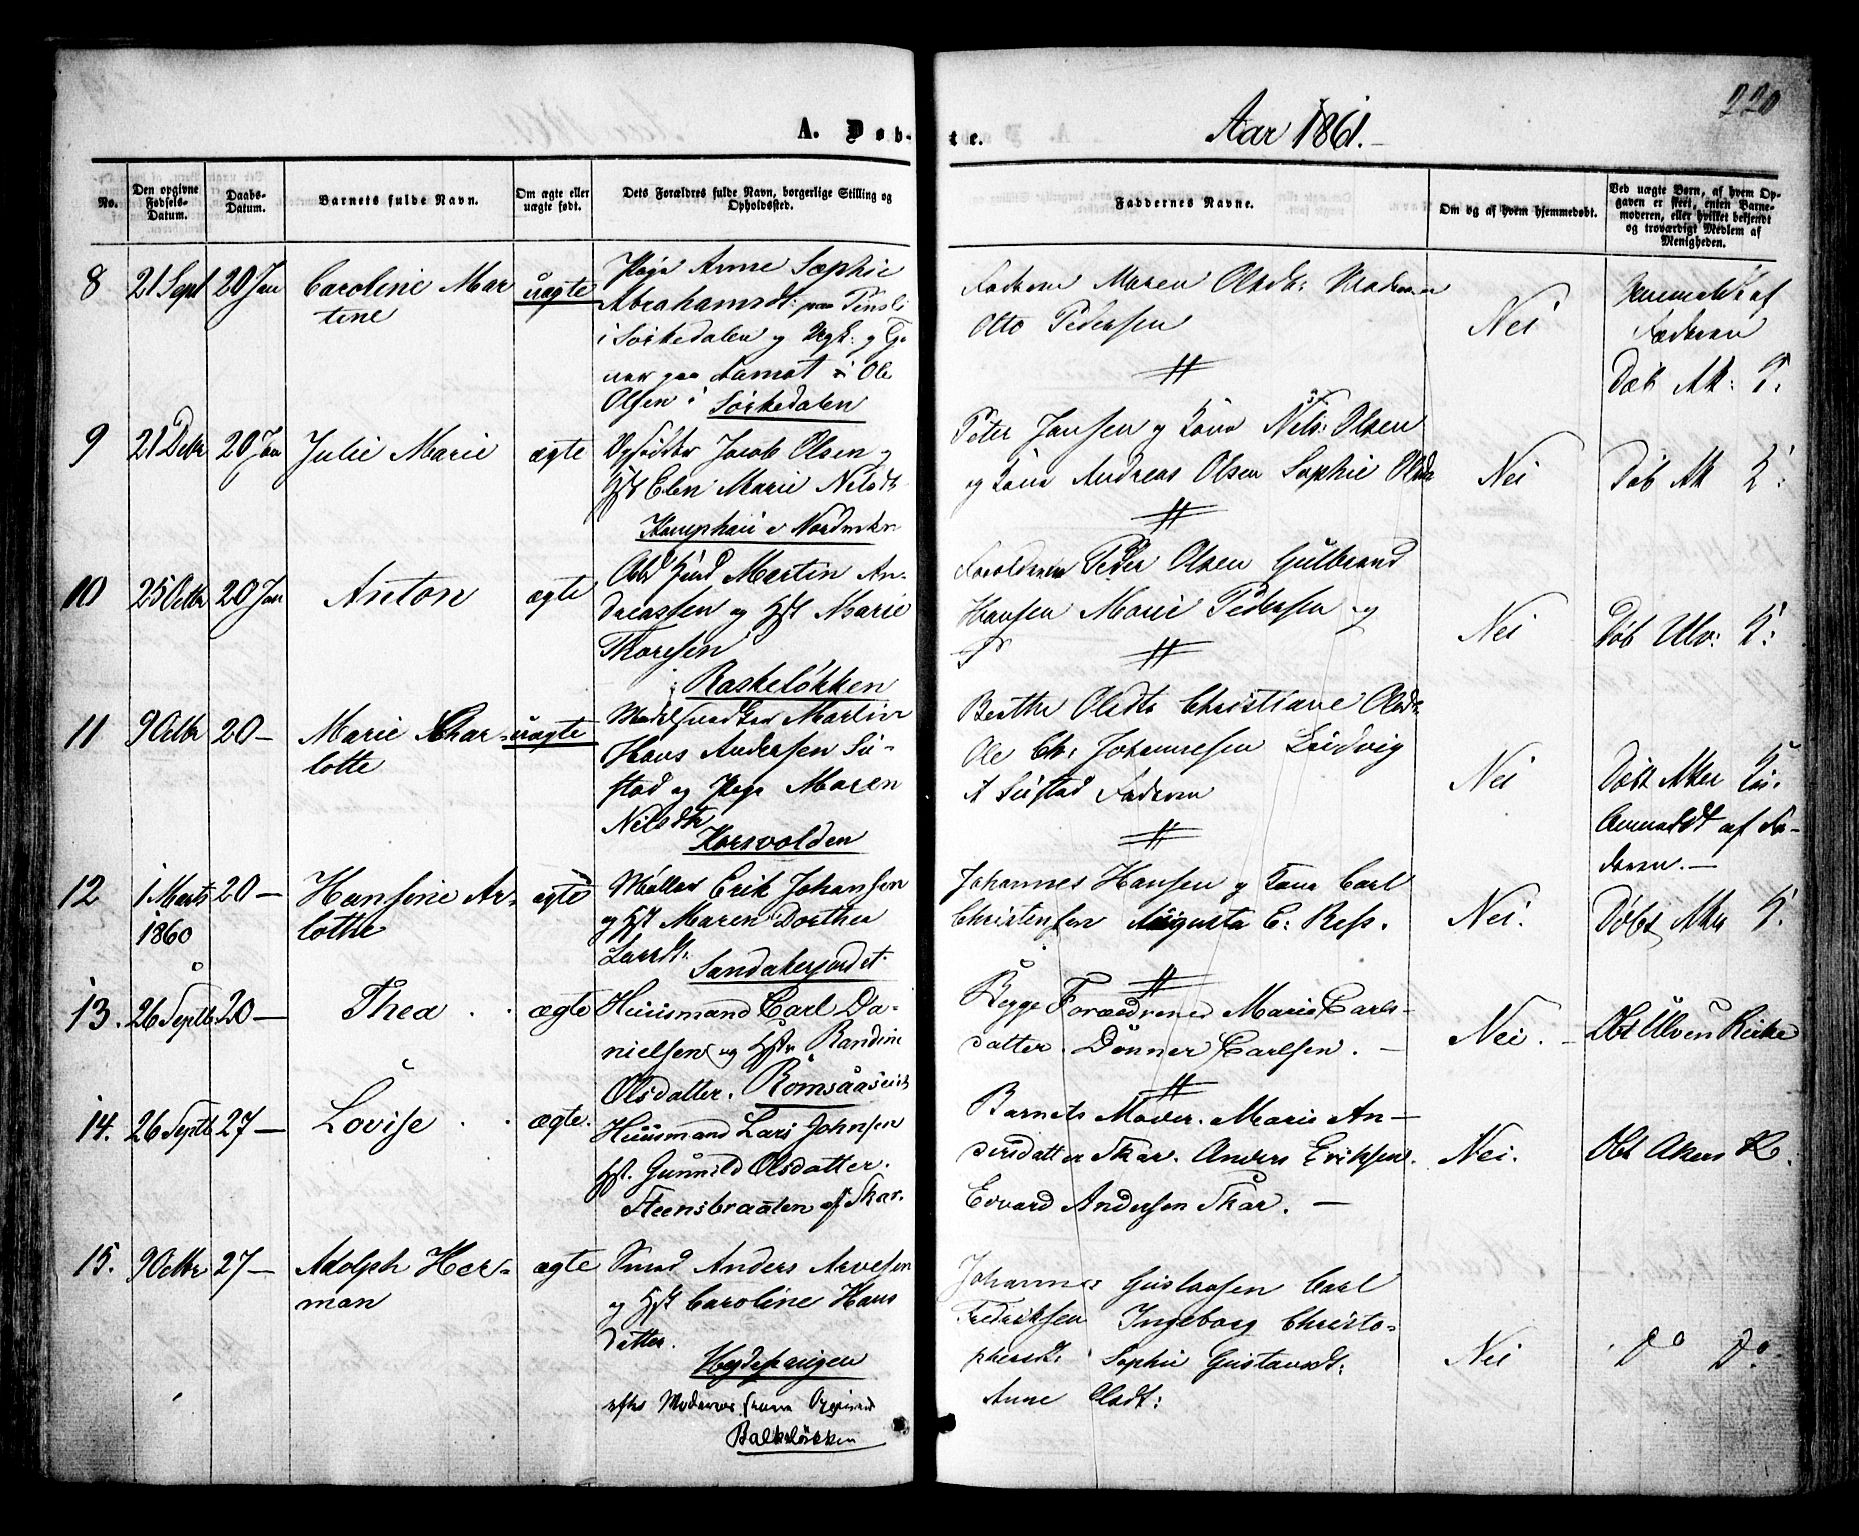 220
A. Døb-
te.
Aar 1861.
No.
Den opgivne Fødsels-Datum.
Daabs-Datum.
Barnets fulde Navn.
Om ægte eller uægte født.
Dets Forældres fulde Navn, borgerlige Stilling og Opholdssted.
Faddernes Navne.
Om og af hvem hjemmedøbt.
Ved uægte Børn, af hvem Opgaven er skeet, enten Barnemoderen, eller hvilket bekjendt og troværdigt Medlem af Menigheden.
8 21 Sept 20 Jan Caroline Mar
tine
uægte
Pige Anne Sophie
Abrahamsdt: paa
i Sørkedalen og Ungk:
paa Aamot i Ole
Olsen i Sørkedalen
Faderen Maren Olsdt:
Otto Pedersen
Nei
Anmeldt af
Faderen
Døb Ak: K:
9 21 Decbr 20 Jan Julie Marie ægte
Opsidder Jacob Olsen og
Hst Elen Marie Nilsdtr
Kamphaug i Nordmkn
Peter Jansen og Kone Nils Olsen
og Kone Andreas Olsen Sophie Olsdr
Nei
Døb Ak K:
10 25 Octbr 20 Jan Anton ægte
Martin An-
dreassen og Hst Marie
Thoresen
i Raskeløkken
Forældrene Peder Olsen Gulbrand
Hansen Marie Pedersen og
Nei
Døb Ulv: K:
11 9 Octbr 20 – Marie Char-
lotte
uægte
Martin
Hans Andersen Su-
stad og Pige Maren
Nilsdtr
Korsvolden
Berthe Olsdtr Christiane Olsdr
Ole Ch: Johannesen Ludvig
A Sustad Faderen
Nei
Døbt Aker K:
Anmeldt af Fa-
deren. –
12 1 Marts 20 – Hansine Ar-
1860
lotthe
ægte
Møller Erik Johansen
og Hst Maren Dorthea
Larsdt:
Sandakerjordet
Johannes Hansen og Kone Carl
Christensen Augusta C: Ress.
Nei.
Døbt Aker K.
13. 26 Septb 20 – Thea ægte
Huusmand Carl Da-
nielsen og Hst. Randine
Olsdatter. Romsaaseie
Begge Forældrene Marie Carls-
datter. Donner Carlsen. –
Nei. –
Dbt Ulven Kirke
14. 26 Septb 27 – Lovise ægte.
Huusmand Lars Johnsen
Hst. Gunnild Olsdatter.
Steensbraaten af Skar.
Barnets Moder. Marie An-
dersdatter Skar. Anders Eriksen.
Edvard Andersen Skar. –
Nei.
Dbt Akers K.
15. 9 Octbr 27 – Adolph Her-
man
ægte
Smed Anders Arvesen
og Hst Caroline Hans
datter.
efter Moderens
Balkeløkken
Johannes Gustavsen Carl
Fredriksen Ingeborg Christo-
phersdt: Sophie Gustavsdt:
Anne Olsdt:
Nei
Do Do